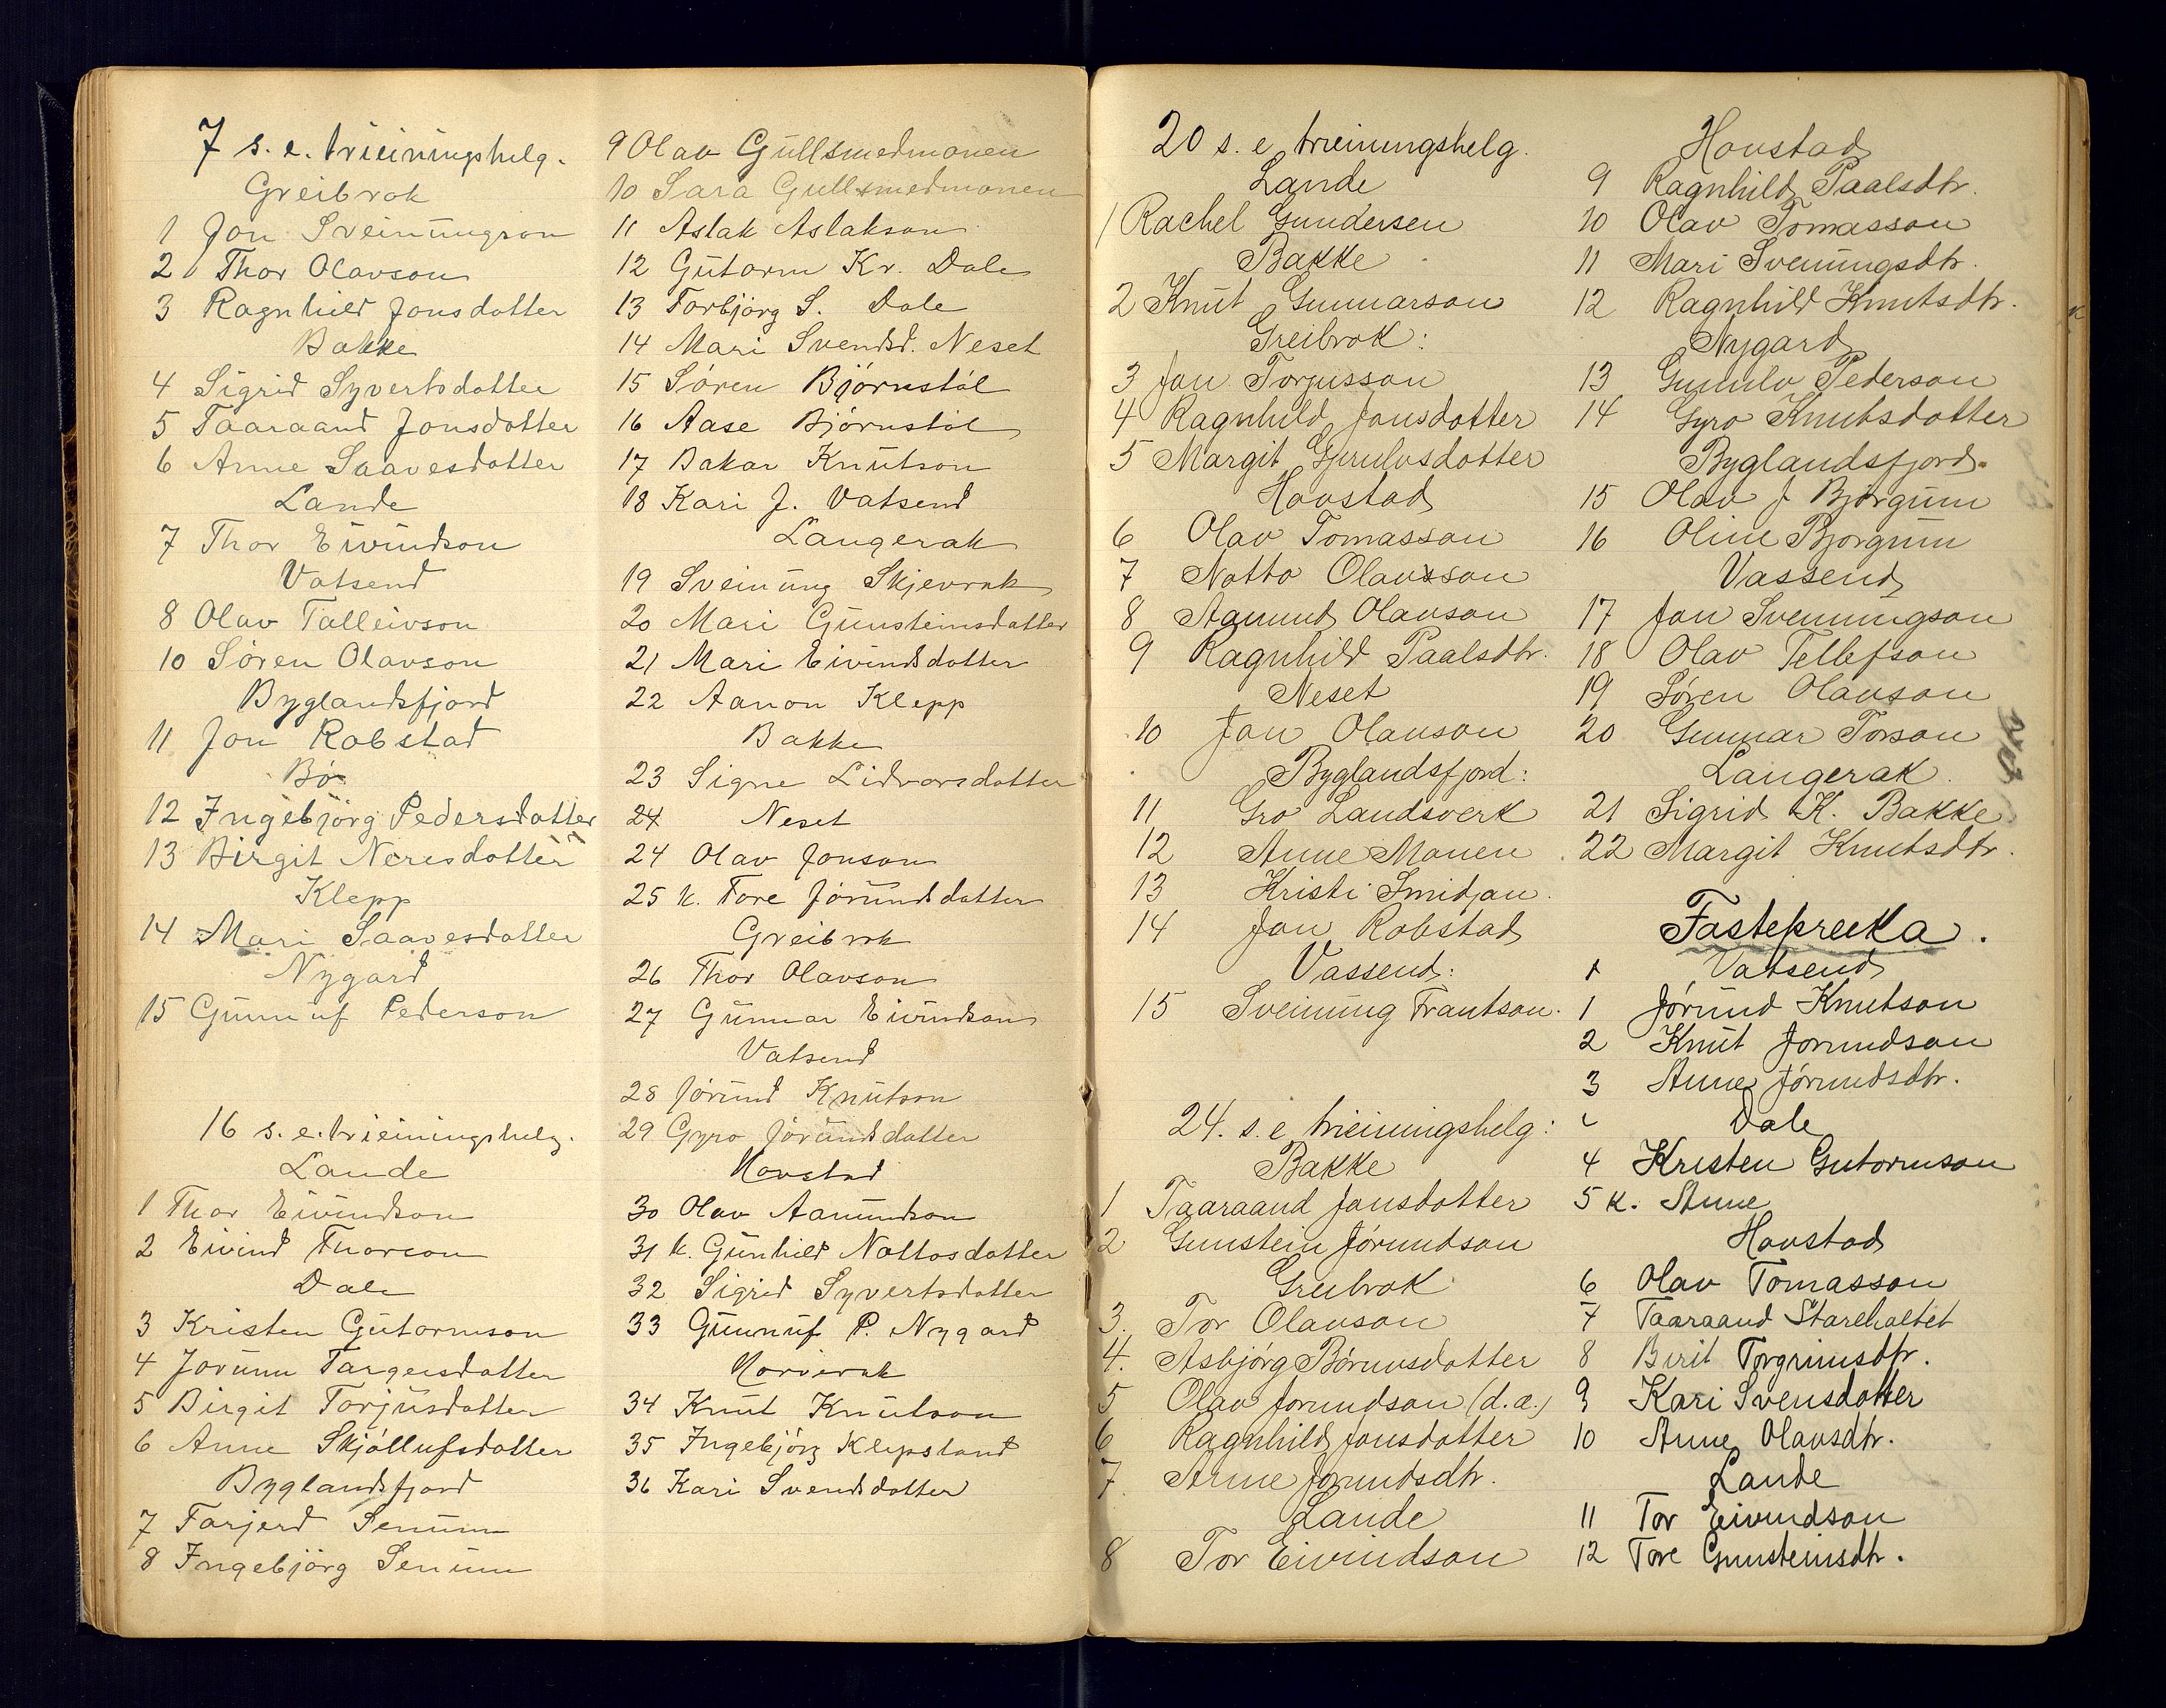 7 s. e. trieiningshelg.
Greibrok
1 Jon Sveinungson
2 Thor Olavson
3 Ragnhild Jonsdotter
Bakke
4 Sigrid Syvertsdotter
5 Taaraand Jonsdotter
6 Anne Saavesdotter
Lande
7 Thor Eivindson
Vatsend
8 Olav Talleivson
10 Søren Olavson
Byglandsfjord
11 Jon Robstad
Bø
12 Ingebjörg Pedersdotter
13 Birgit Neresdotter
Klepp
14 Mari Saavesdotter
Nygard
15 Gunnuf Pederson
16 s. e. trieiningshelg.
Lande
1 Thor Eivindson
2 Eivind Thorson
Dale
3 Kristen Gutormson
4 Jorunn Targeisdotter
5 Birgit Torjusdotter
6 Anne Skjøllufsdotter
Byglandsfjord
7 Torjerd Senum
8 Ingebjörg Senum
9 Olav Gullsmedmonen
10 Sara Gullsmedmonen
11 Aslak Aslakson
12 Gutorm Kr. Dale
13 Torbjörg S. Dale
14 Mari Svendsd. Neset
15 Søren Bjørnstøl
16 Aase Bjørnstøl
17 Bakar Knutson
18 Kari J. Vatsend
Langerak
19 Sveinung Skjevrak
20 Mari Gunsteinsdotter
21 Mari Eivindsdotter
22 Aanon Klepp
Bakke
23 Signe Lidvorsdotter
24 Neset
24 Olav Jonson
25 k. Tore Jørundsdotter
Greibrok
26 Thor Olavson
27 Gunnar Eivindson
Vatsend
28 Jørund Knutson
29 Gyro Jørundsdotter
Hovstad
30 Olav Aamundson
31 k. Gunhild Nottosdotter
32 Sigrid Syvertsdotter
33 Gunnuf P. Nygard
Horverak
34 Knut Knutson
35 Ingebjörg Klepsland
36 Kari Svendsdotter
20 s. e. trieiningshelg.
Lande
1 Rachel Gundersen
Bakke
2 Knut Gunnarson
Greibrok:
3 Jon Torjusson
4 Ragnhild Jonsdotter
5 Margit Gunlvsdotter
Hovstad
6 Olav Tomasson
7 Notto Olavsson
8 Aamund Olavson
9 Ragnhild Paalsdtr.
Neset
10 Jon Olavson
Byglandsfjord:
11 Gro Landsverk
12 Anne Monen
13 Kristi Smidjan.
14 Jon Robstad
Vassend:
15 Sveinung Frantson.
24. s. e trieiningshelg:
Bakke
1 Taaraand Jonsdotter
2 Gunstein Jørundson
Greibrok
3. Tor Olavson
4. Asbjørg Börunsdotter
5 Olav Jorundson (d.æ.)
6 Ragnhild Jonsdotter
7. Anne Jorundsdtr.
Lande
8 Tor Eivindson
Hovstad
9 Ragnhild Paalsdtr.
10 Olav Tomasson
11 Mari Sveinungsdtr.
12 Ragnhild Knutsdtr.
Nygard
13 Gunnulv Pederson
14 Gyro Knutsdotter
Byglandsfjord.
15 Olav J Bjørgum
16 Oline Bjorgum
Vassend
17 Jon Sveinungson
18 Olav Tellefson
19 Søren Olavson
20 Gunnar Torson
Langerak.
21 Sigrid K. Bakke
22 Margit Knutsdtr.
Fastepreika.
Vatsend
1 Jørund Knutson
2 Knut Jorundson
3 Anne Jørundsdtr.
Dale
4 Kristen Gutormson
5 k. Anne
Hovstad
6 Olav Tomasson
7 Taaraand Stareholtet
8 Birit Torgrimsdtr.
9 Kari Svensdotter
10 Anne Olavsdtr.
Lande
11 Tor Eivindson
12 Tore Gunsteinsdtr.